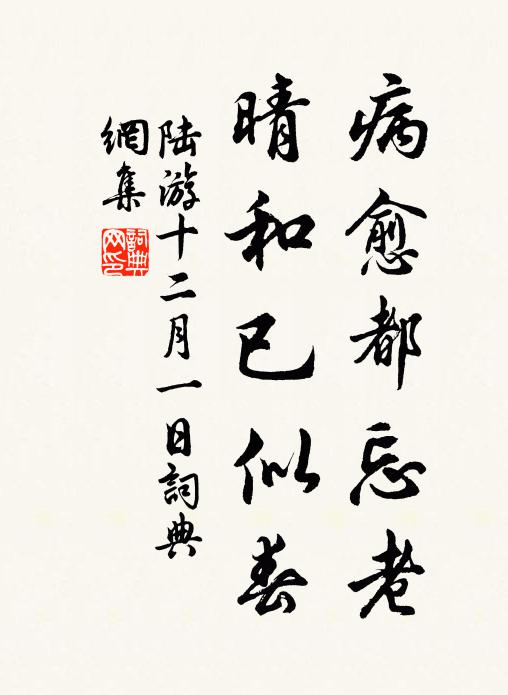 病愈都忘老
晴和已似春
陆游十二月一日詞典
網集
詞典网印